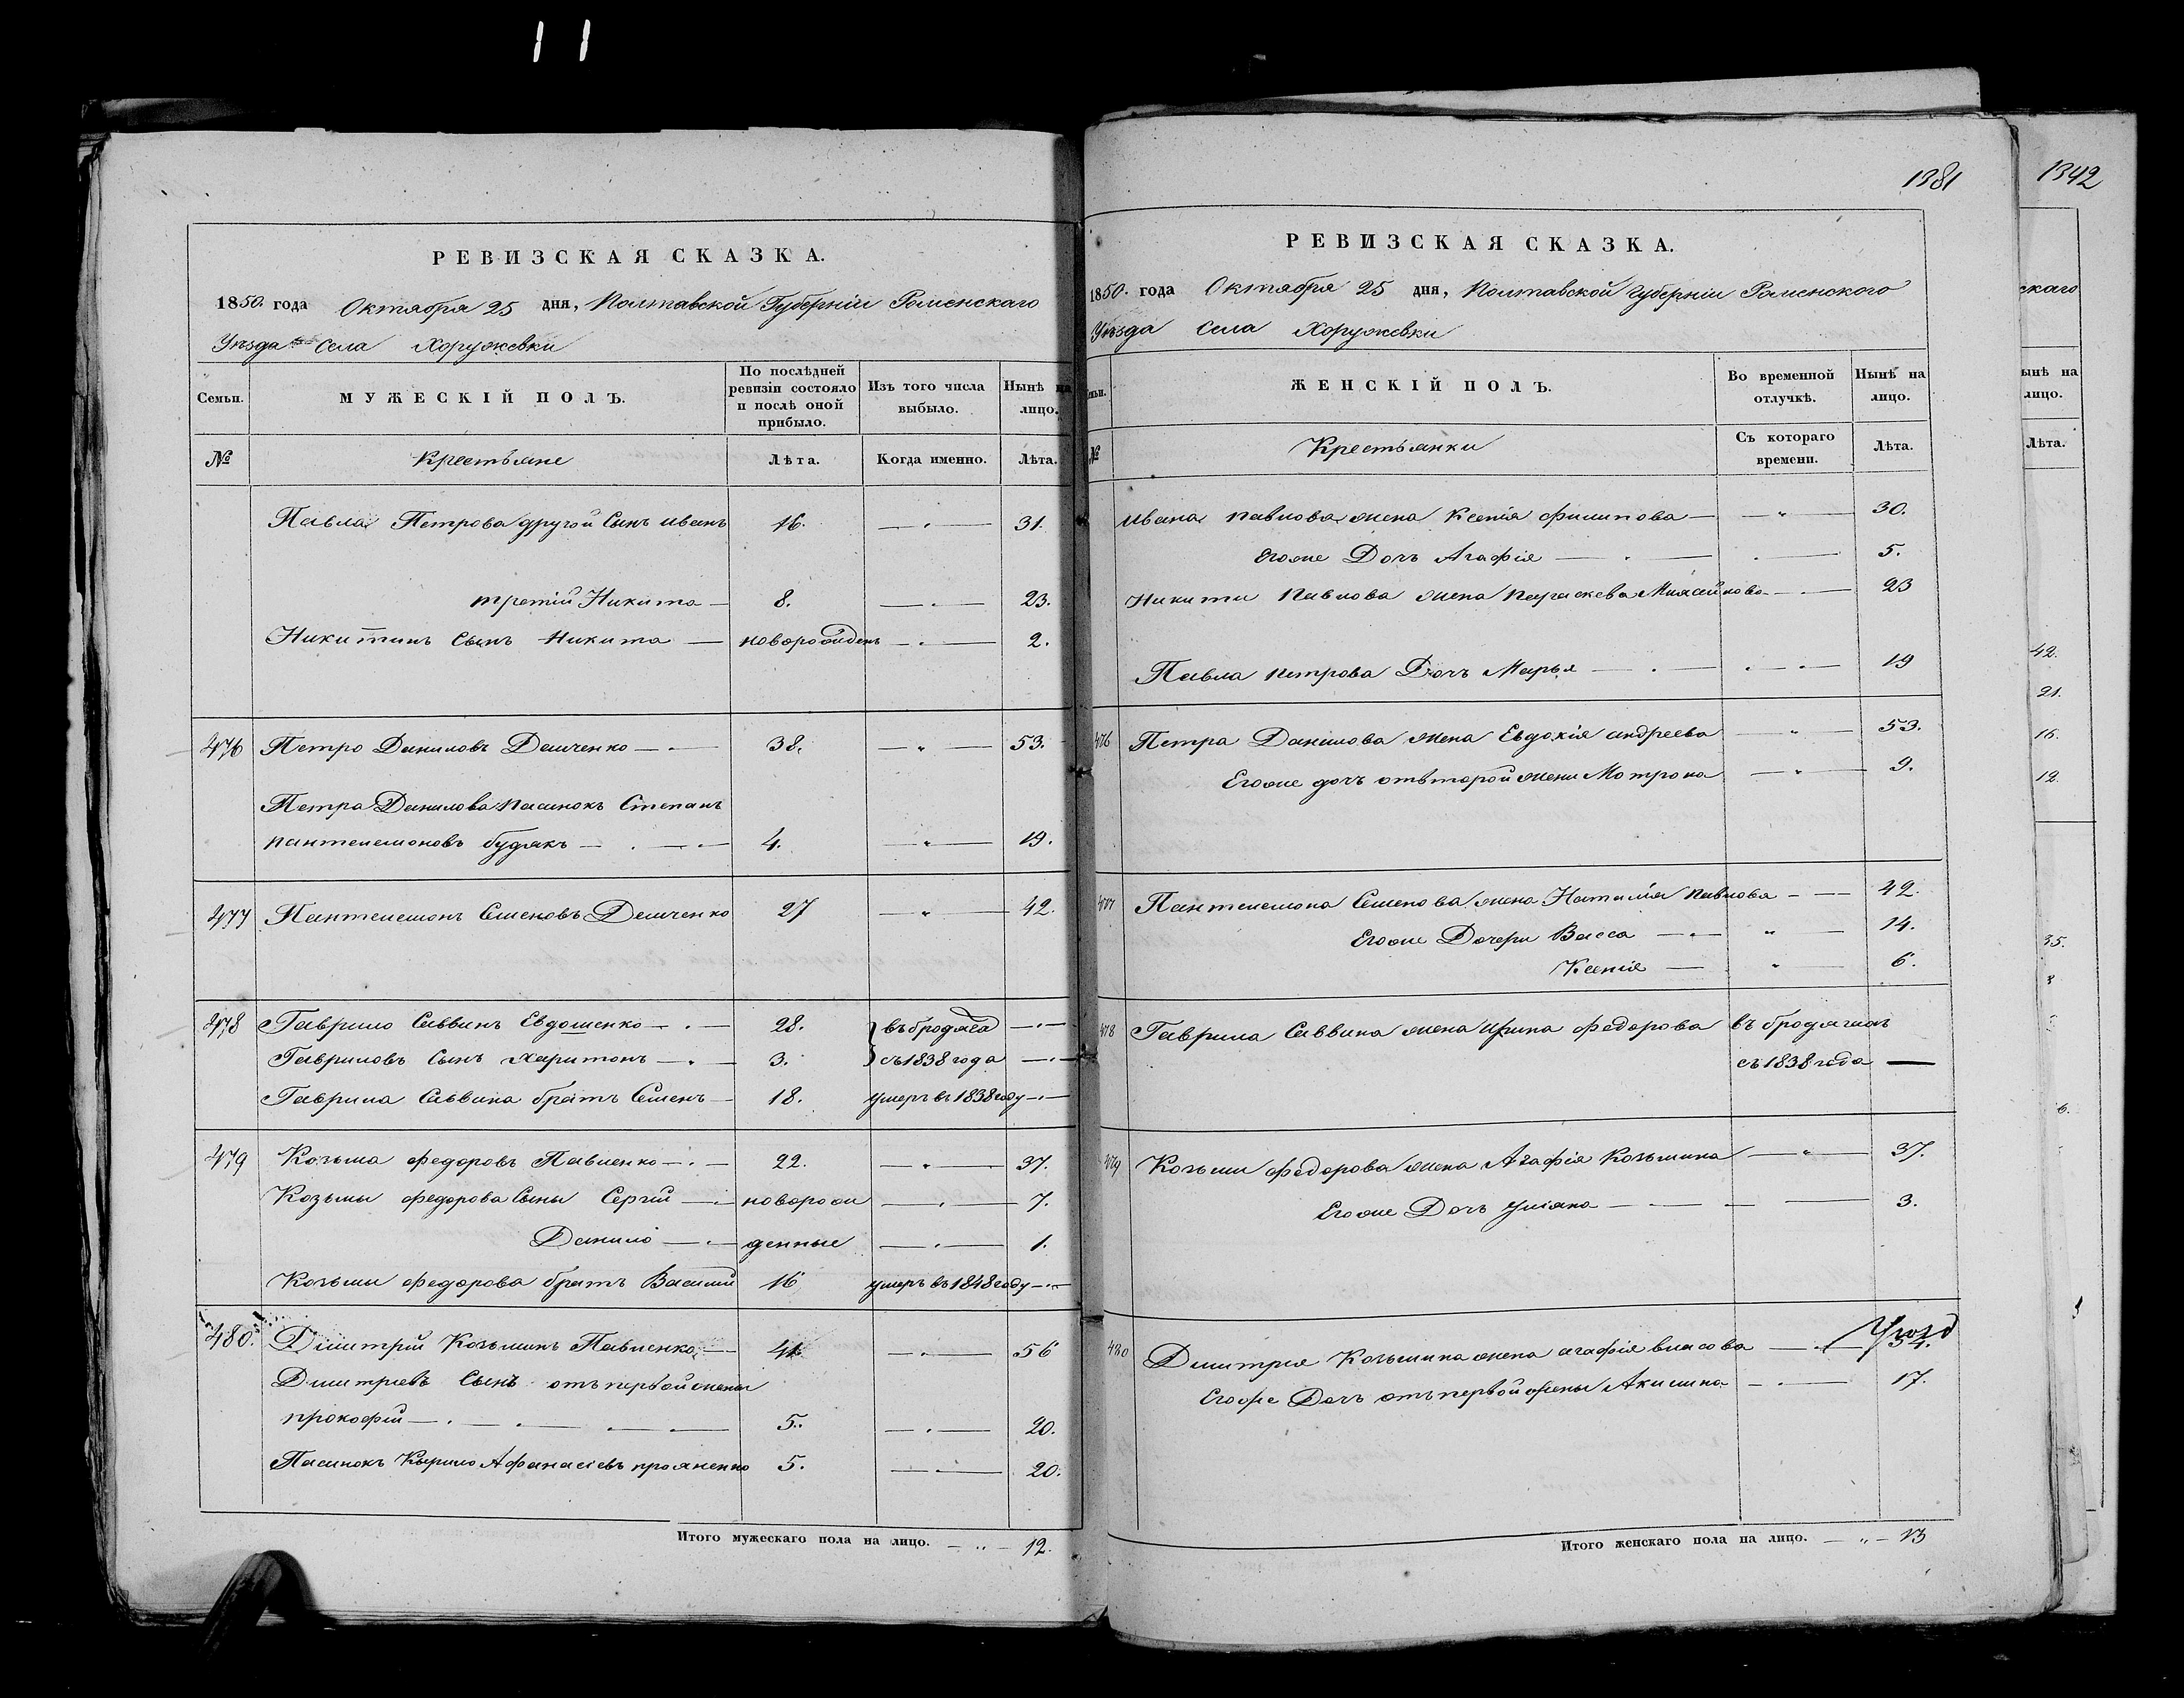 1381
1342
РЕВИЗСКАЯ СКАЗКА.
1850. года Октября 25 дня, Полтавской Губерніи Роменскаго
Уѣзда села Хоружевки
Семьи. МУЖЕСКІЙ ПОЛЪ. По послѣдней ревизіи состояло и послѣ оной прибыло. Изъ того числа выбыло. Нынѣ на лицо.
№ Крестьяне Лѣта. Когда именно. Лѣта.
Павла Петрова другой Сынъ иванъ 16. — 31.
третій Никита — 8. — 23.
Никитинъ Сынъ Никита — новорожденъ — 2.
476 Петро Даниловъ Демченко — 38. — 53.
Петра Данилова пасинокъ Степанъ
пантелемоновъ будякъ — 4. — 19.
477 Пантелемонъ Семеновъ Демченко 27 — 42.
478 Гаврило Саввинъ Евдошенко — 28. въ бродяга —
Гавриловъ Сынъ Харитонъ — 3. съ 1838 года —
Гаврила Саввина братъ Семенъ — 18. умеръ въ 1838 году —
479 Козьма федоровъ Павленко — 22. — 37.
Козьмы федорова Сыны Сергій — новорож — 7.
Данило — денные — 1.
Козьмы федорова братъ Василій 16 умеръ въ 1848 году —
480. Дмитрій Козьминъ Павленко — 41. — 56
Дмитріевъ Сынъ отъ первой жены
прокофій — 5. — 20.
Пасинокъ Кирило Афанасіевъ 5. — 20.
Итого мужескаго пола на лицо. — 12.
РЕВИЗСКАЯ СКАЗКА.
1850. года Октября 25 дня, Полтавской губерніи Роменского
Уѣзда села Хоружевки
ЖЕНСКІЙ ПОЛЪ. Во временной отлучкѣ. Нынѣ на лицо.
№ Крестьянки Съ котораго времени. Лѣта.
Ивана павлова жена Ксенія филипова — 30.
Егоже Дочь Агафія — 5.
Никити павлова жена параскева — 23
Павла петрова Дочъ Марья — 19
476 Петра Данилова жена Евдокія андреева — 53.
Егоже дочъ отъ второй жени Мотрона — 9.
477 Пантелемона Семенова жена Наталія павлова — 42.
Егоже Дочери Васса — 14.
Ксенія — 6.
478 Гаврила Саввина жена Ирина федорова въ бродягахъ
съ 1838 года —
479 Козьми федорова жена Агафія Козьмина — 37.
Егоже Дочъ уліяна — 3.
480 Дмитрія Козьмина жена агафія власова — 54.
Егоже Дочъ отъ первой жены Акилина — 17.
Итого женскаго пола на лицо. — 13
скаго
ынѣ на
лицо.
Лѣта.
42.
21.
12.
35.
6.